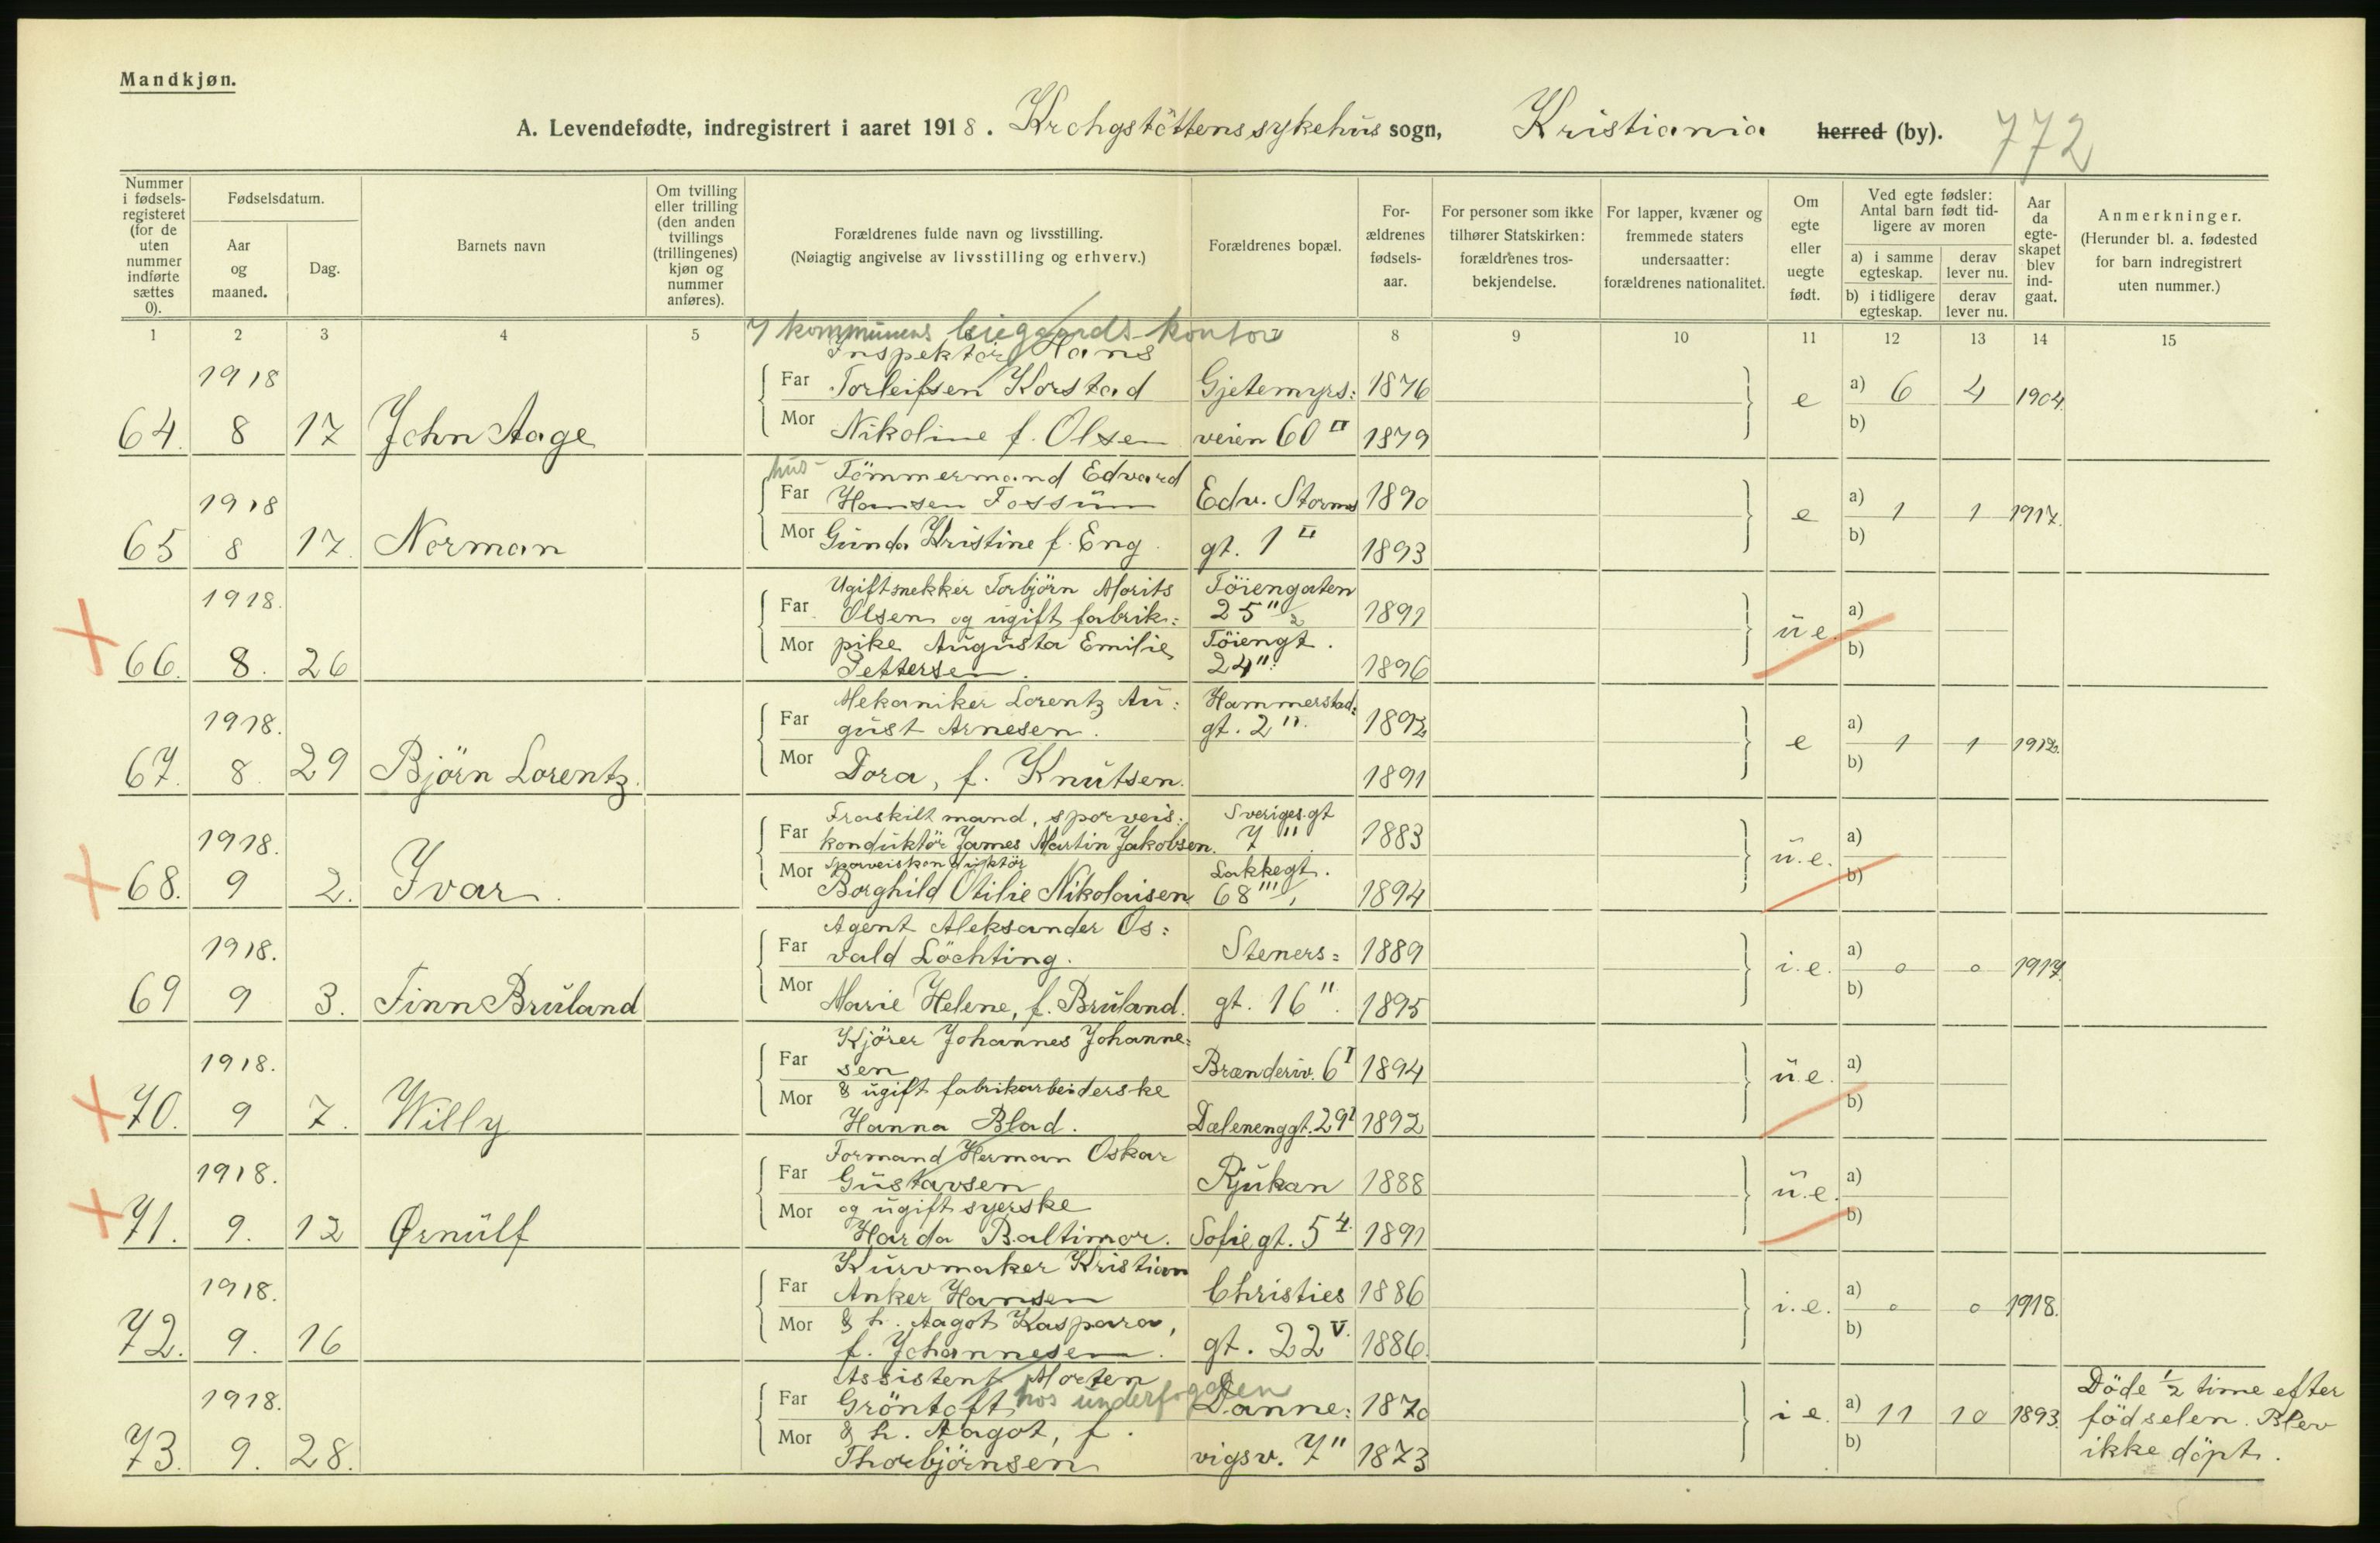 Mandkjøn.
A. Levendefødte, indregistrert i aaret 1918. Krohgstøttens sykehus sogn, Kristiania herred (by). 772
Nummer i fødsels-registeret (for de uten nummer indførte sættes 0).
Fødselsdatum.
Aar og maaned.
Dag.
Barnets navn
Om tvilling eller trilling (den anden tvillings (trillingenes) kjøn og nummer anføres).
Forældrenes fulde navn og livsstilling.
(Nøiagtig angivelse av livsstilling og erhverv.)
Forældrenes bopæl.
For-ældrenes fødsels-aar.
For personer som ikke tilhører Statskirken: forældrenes tros-bekjendelse.
For lapper, kvæner og fremmede staters undersaatter: forældrenes nationalitet.
Om egte eller uegte født.
Ved egte fødsler: Antal barn født tid-ligere av moren
a) i samme egteskap.
derav lever nu.
b) i tidligere egteskap.
derav lever nu.
Aar da egte-skapet blev ind-gaat.
Anmerkninger.
(Herunder bl. a. fødested for barn indregistrert uten nummer.)
1 2 3 4 5 8 9 10 11 12 13 14 15
I kommunens leiegaards-kontor
Inspektör Hans
1918 Far Torleifsen Korstad Gjetemyrs: 1876
64. 8 17 John Aage Mor Nikoline f. Olsen veien 60 II 1879 e a) 6 4 1904. b)
hus- Tömmermand Edvard
1918 Far Hansen Fossum Edv. Storms 1890
65 8 17. Norman Mor Gunda Kristine f. Eng gt. 1 II 1893 e a) 1 1 1917. b)
Ugift snekker Torbjörn Morits Töiengaten
1918. Far Olsen og ugift fabrik: 25" 1891
66. 8. 26 Mor pike Augusta Emilie Töiengt.
Pettersen. 24" 1896 u e. a) b)
Mekaniker Lorentz Au: Hammerstad:
1918. Far gust Arnesen. gt. 2". 1892
67. 8. 29 Björn Lorentz. Mor Dora, f. Knutsen. 1891 e a) 1 1 1912. b)
Fraskilt mand, sporveis: Sveriges gt
1918. Far konduktör James Martin Jakobsen. 7" 1883
Mor Sporveiskonduktör Lakkegt.
68. 9 2. Ivar. Borghild Otilie Nikolaisen 68"' 1894 u. e. a) b)
Agent Aleksander Os:
1918. Far vald Löchting. Steners= 1889
69 9 3. Finn Bruland Mor Marie Helene, f. Bruland. gt. 16". 1895 i. e. a) o o 1917. b)
Kjörer Johannes Johanne=
1918. Far sen Brænderiv. 6 I 1894
Mor & ugift fabrikarbeiderske
70. 9 7. Willy Hanna Blad. Dælenenggt. 29 I 1892 u. e. a) b)
Formand Herman Oskar
1918. Far Gustavsen Rjukan 1888
Mor og ugift syerske
71. 9. 12 Ørnulf Harda Baltimor. Sofie gt. 5 4. 1891 u. e. a) b)
Kurvmaker Kristian
1918. Far Anker Hansen Christies 1886
Mor & h. Aagot Kaspara,
72. 9. 16 f. Johannesen. gt. 22 V. 1886. i. e. a) o o 1918. b)
Assistent Morten
1918. Far Gröntoft hos underfogden Danne: 1870
Mor & h. Aagot, f.
73. 9. 28. Thorbjörnsen vigsv. 7" 1873 i e. a) 11 10 1893. b)
Döde ½ time efter
födselen. Blev
ikke döpt.